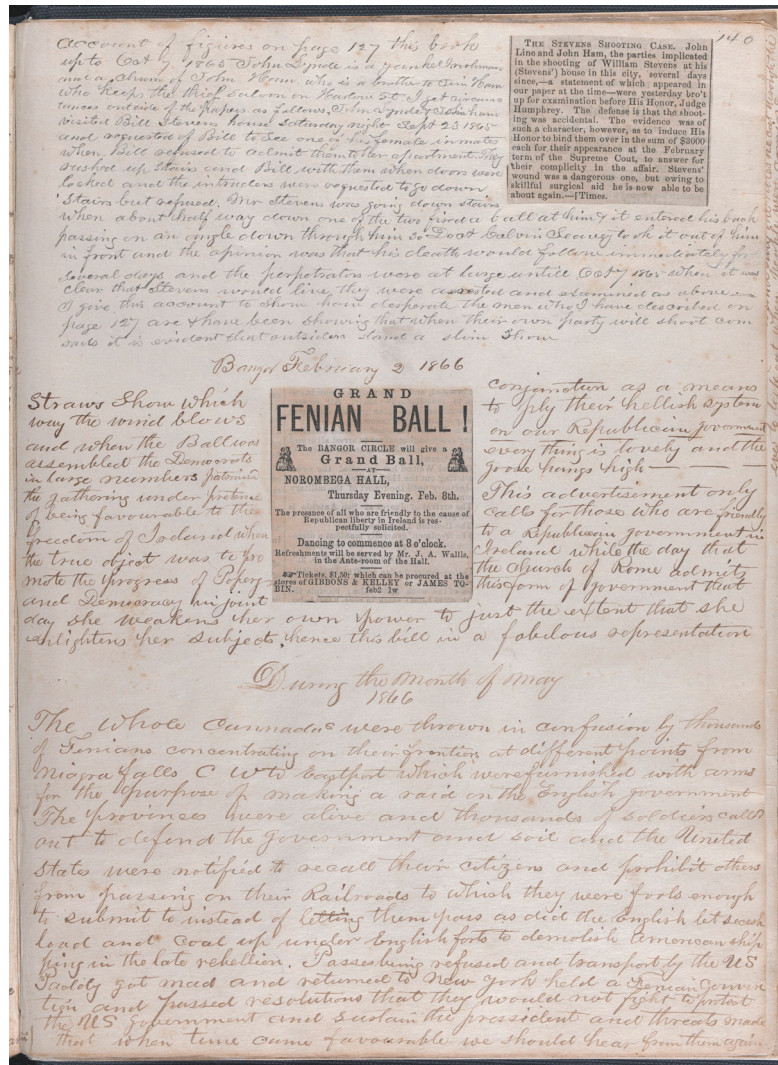 140
account of figures on page 127 this book
up to Oct 7, 1865 John Lynde is a yankee Irishman
and a chum of John Ham who is a brother to Jim Ham
who keeps the thief saloon on Harlow St I get
outside of the papers as follows, John Lynde & John Ham
visited Bill Stevens house Saturday night Sept 23 1865
and requested of Bill to See one of his female inmates
when Bill refused to admit them to her apartment They
rushed up Stairs and Bill with them when doors were
locked and the intruders were requested to go down
Stairs but refused. Mr Stevens was going down stairs
when about half way down one of the two fired a ball at him & it entered his back
passing on an angle down through him so Doct Calvin Seavey took it out of him
in front and the opinion was that his death would follow immediately for
several days and the perpetrators were at large until Oct 7 1865 when it was
clear that Stevens would live, they were arrested and examined as above
I give this account to show how desperate the men who I have described on
page 127 are & have been showing that when their own party will shoot com
rads it is evident that outsiders stand a slim show
THE STEVENS SHOOTING CASE. John
Line and John Ham, the parties implicated
in the shooting of William Stevens at his
(Stevens') house in this city, several days
since,—a statement of which appeared in
our paper at the time—were yesterday bro't
up for examination before His Honor, Judge
Humphrey. The defense is that the shoot-
ing was accidental. The evidence was of
such a character, however, as to induce His
Honor to bind them over in the sum of $3000
each for their appearance at the February
term of the Supreme Cout, to answer for
their complicity in the affair. Stevens'
wound was a dangerous one, but owing to
skillful surgical aid he is now able to be
about again.—[Times.
Bangor February 2 1866
Straws Show which
way the wind blows
and when the Ball was
assembled the Democrats
in large numbers patronized
the gathering under pretense
of being favourable to the
freedom of Ireland when
the true object was to pro
mote the progress of Popery
and Democracy in joint
GRAND
FENIAN BALL!
The BANGOR CIRCLE will give a
Grand Ball,
—AT—
NOROMBEGA HALL,
Thursday Evening, Feb. 8th.
The presence of all who are friendly to the cause of
Republican liberty in Ireland is res-
pectfully solicited.
Dancing to commence at 8 o'clock.
Refreshments will be served by Mr. J. A. Wallis,
in the Ante-room of the Hall.
Tickets, $1,50; which can be procured at the
stores of GIBBONS & KELLEY or JAMES TO-
BIN. feb2 1w
conjunction as a means
to ply their hellish system
on our Republican government
every thing is lovely and the
goose hangs high — — —
This advertisement only
calls for those who are friendly
to a Republican government in
Ireland while the day that
the church of Rome admits
this form of government that
day she weakens her own power to just the extent that she
enlightens her subjects, hence this bill in a fabulous representation
During the Month of May
1866
The whole Cannadas were thrown in confusion by thousands
of Fenians concentrating on their frontier at different points from
Niagra falls C W to Eastport which were furnished with arms
for the purpose of making a raid on the English government
The provinces were alive and thousands of soldiers called
out to defend the government and soil and the United
States were notified to recall their citizens and prohibit others
from passing on their Railroads to which they were fools enough
to submit to instead of letting them pass as did the English let secesh
load and coal up under English forts to demolish American ship
ping in the late rebellion. Pass being refused and transport by the US
Paddy got mad and returned to New York held a Fenian Conven
tion and passed resolutions that they would not fight to protect
the US government and sustain the president and threats made
that when time came favourable we should hear from them again